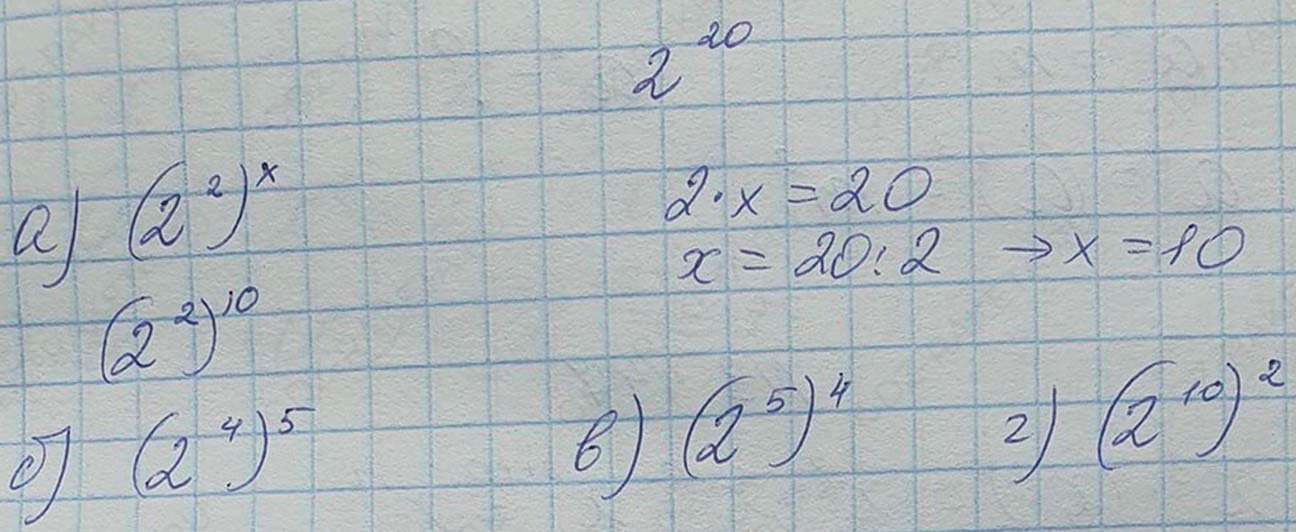 2^20
а) (2^2)^x 2·x = 20
x = 20:2 → x = 10
(2^2)^10
б) (2^4)^5 в) (2^5)^4 г) (2^10)^2